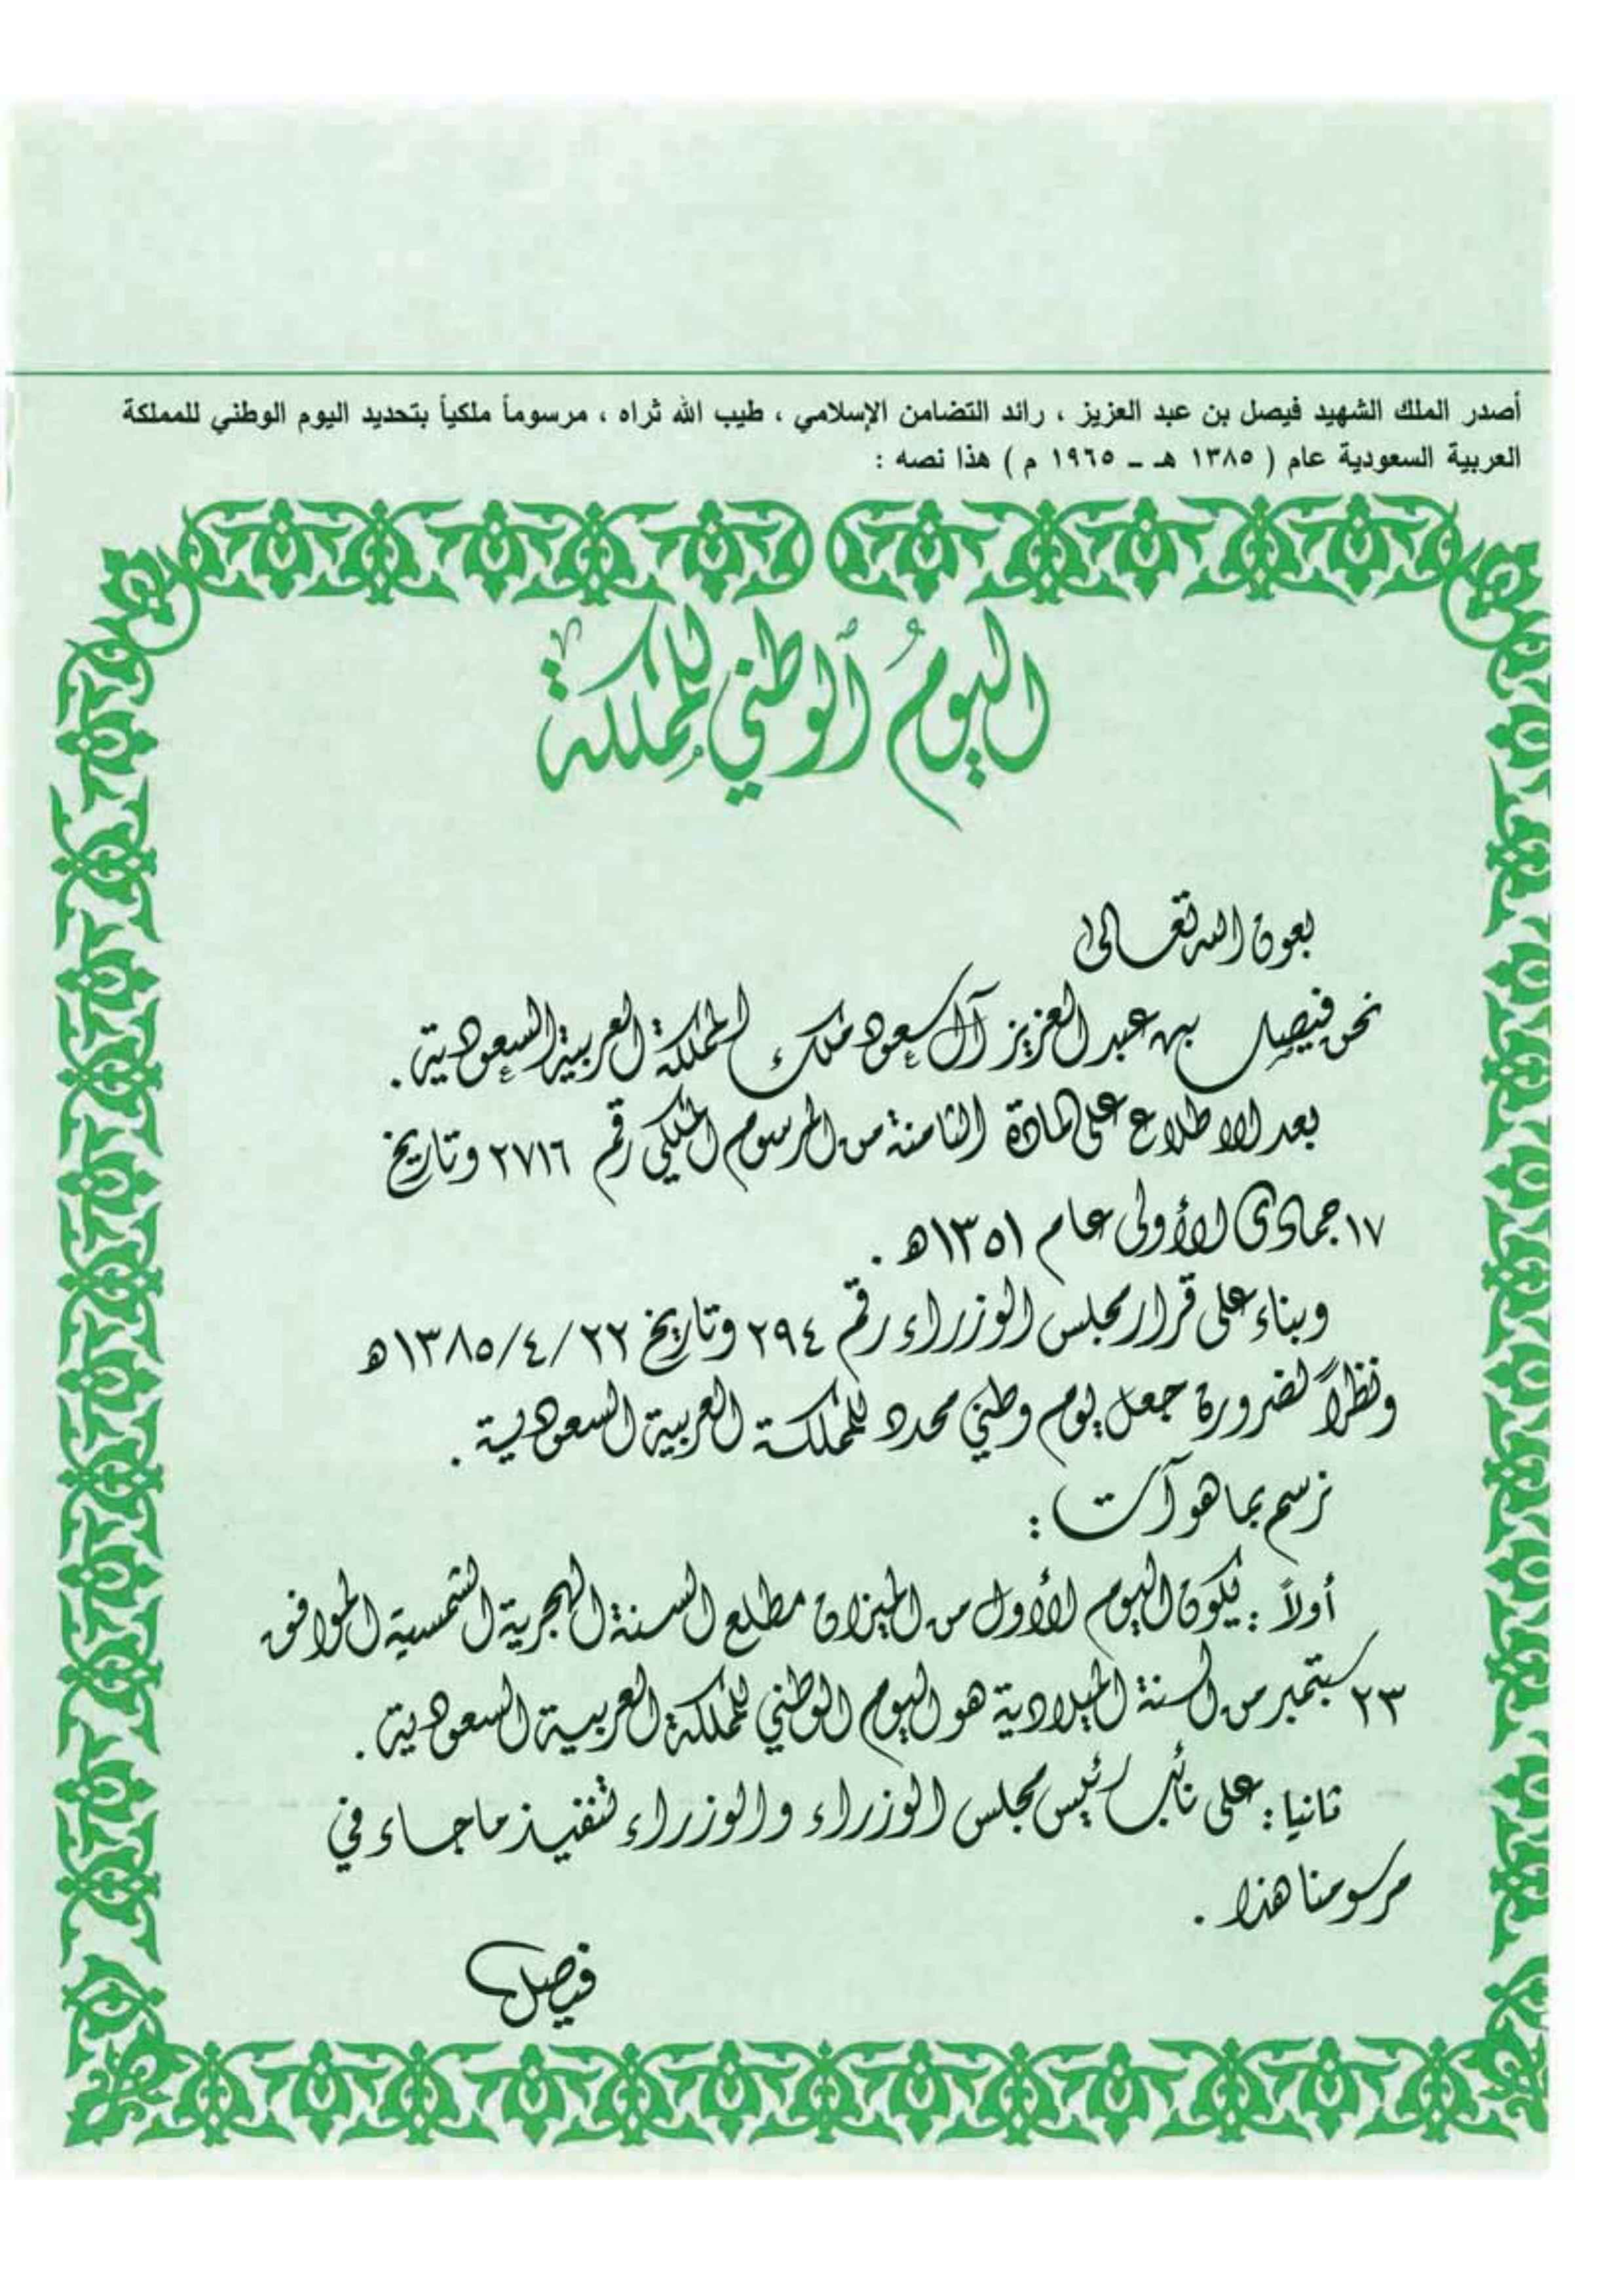 أصدر الملك الشهيد فيصل بن عبد العزيز ، رائد التضامن الإسلامي ، طيب الله ثراه ، مرسوماً ملكياً بتحديد اليوم الوطني للمملكة
العربية السعودية عام ( ١٣٨٥ هـ ـ ١٩٦٥ م ) هذا نصه :
اليومُ الوطني للمملكة
بعون الله تعالى
نحن فيصل بن عبد العزيز آل سعود ملك المملكة العربية السعودية .
بعد الاطلاع على المادة الثامنة من المرسوم الملكي رقم ٢٧١٦ وتاريخ
١٧ جمادى الأولى عام ١٣٥١هـ .
وبناء على قرار مجلس الوزراء رقم ٢٩٤ وتاريخ ٢٢ /٤ /١٣٨٥هـ
ونظراً لضرورة جعل يوم وطني محدد للمملكة العربية السعودية .
نرسم بما هو آت :
أولاً : يكون اليوم الأول من الميزان مطلع السنة الهجرية الشمسية الموافق
٢٣ سبتمبر من السنة الميلادية هو اليوم الوطني للمملكة العربية السعودية .
ثانيا : على نائب رئيس مجلس الوزراء والوزراء تنفيذ ما جاء في
مرسومنا هذا .
فيصل